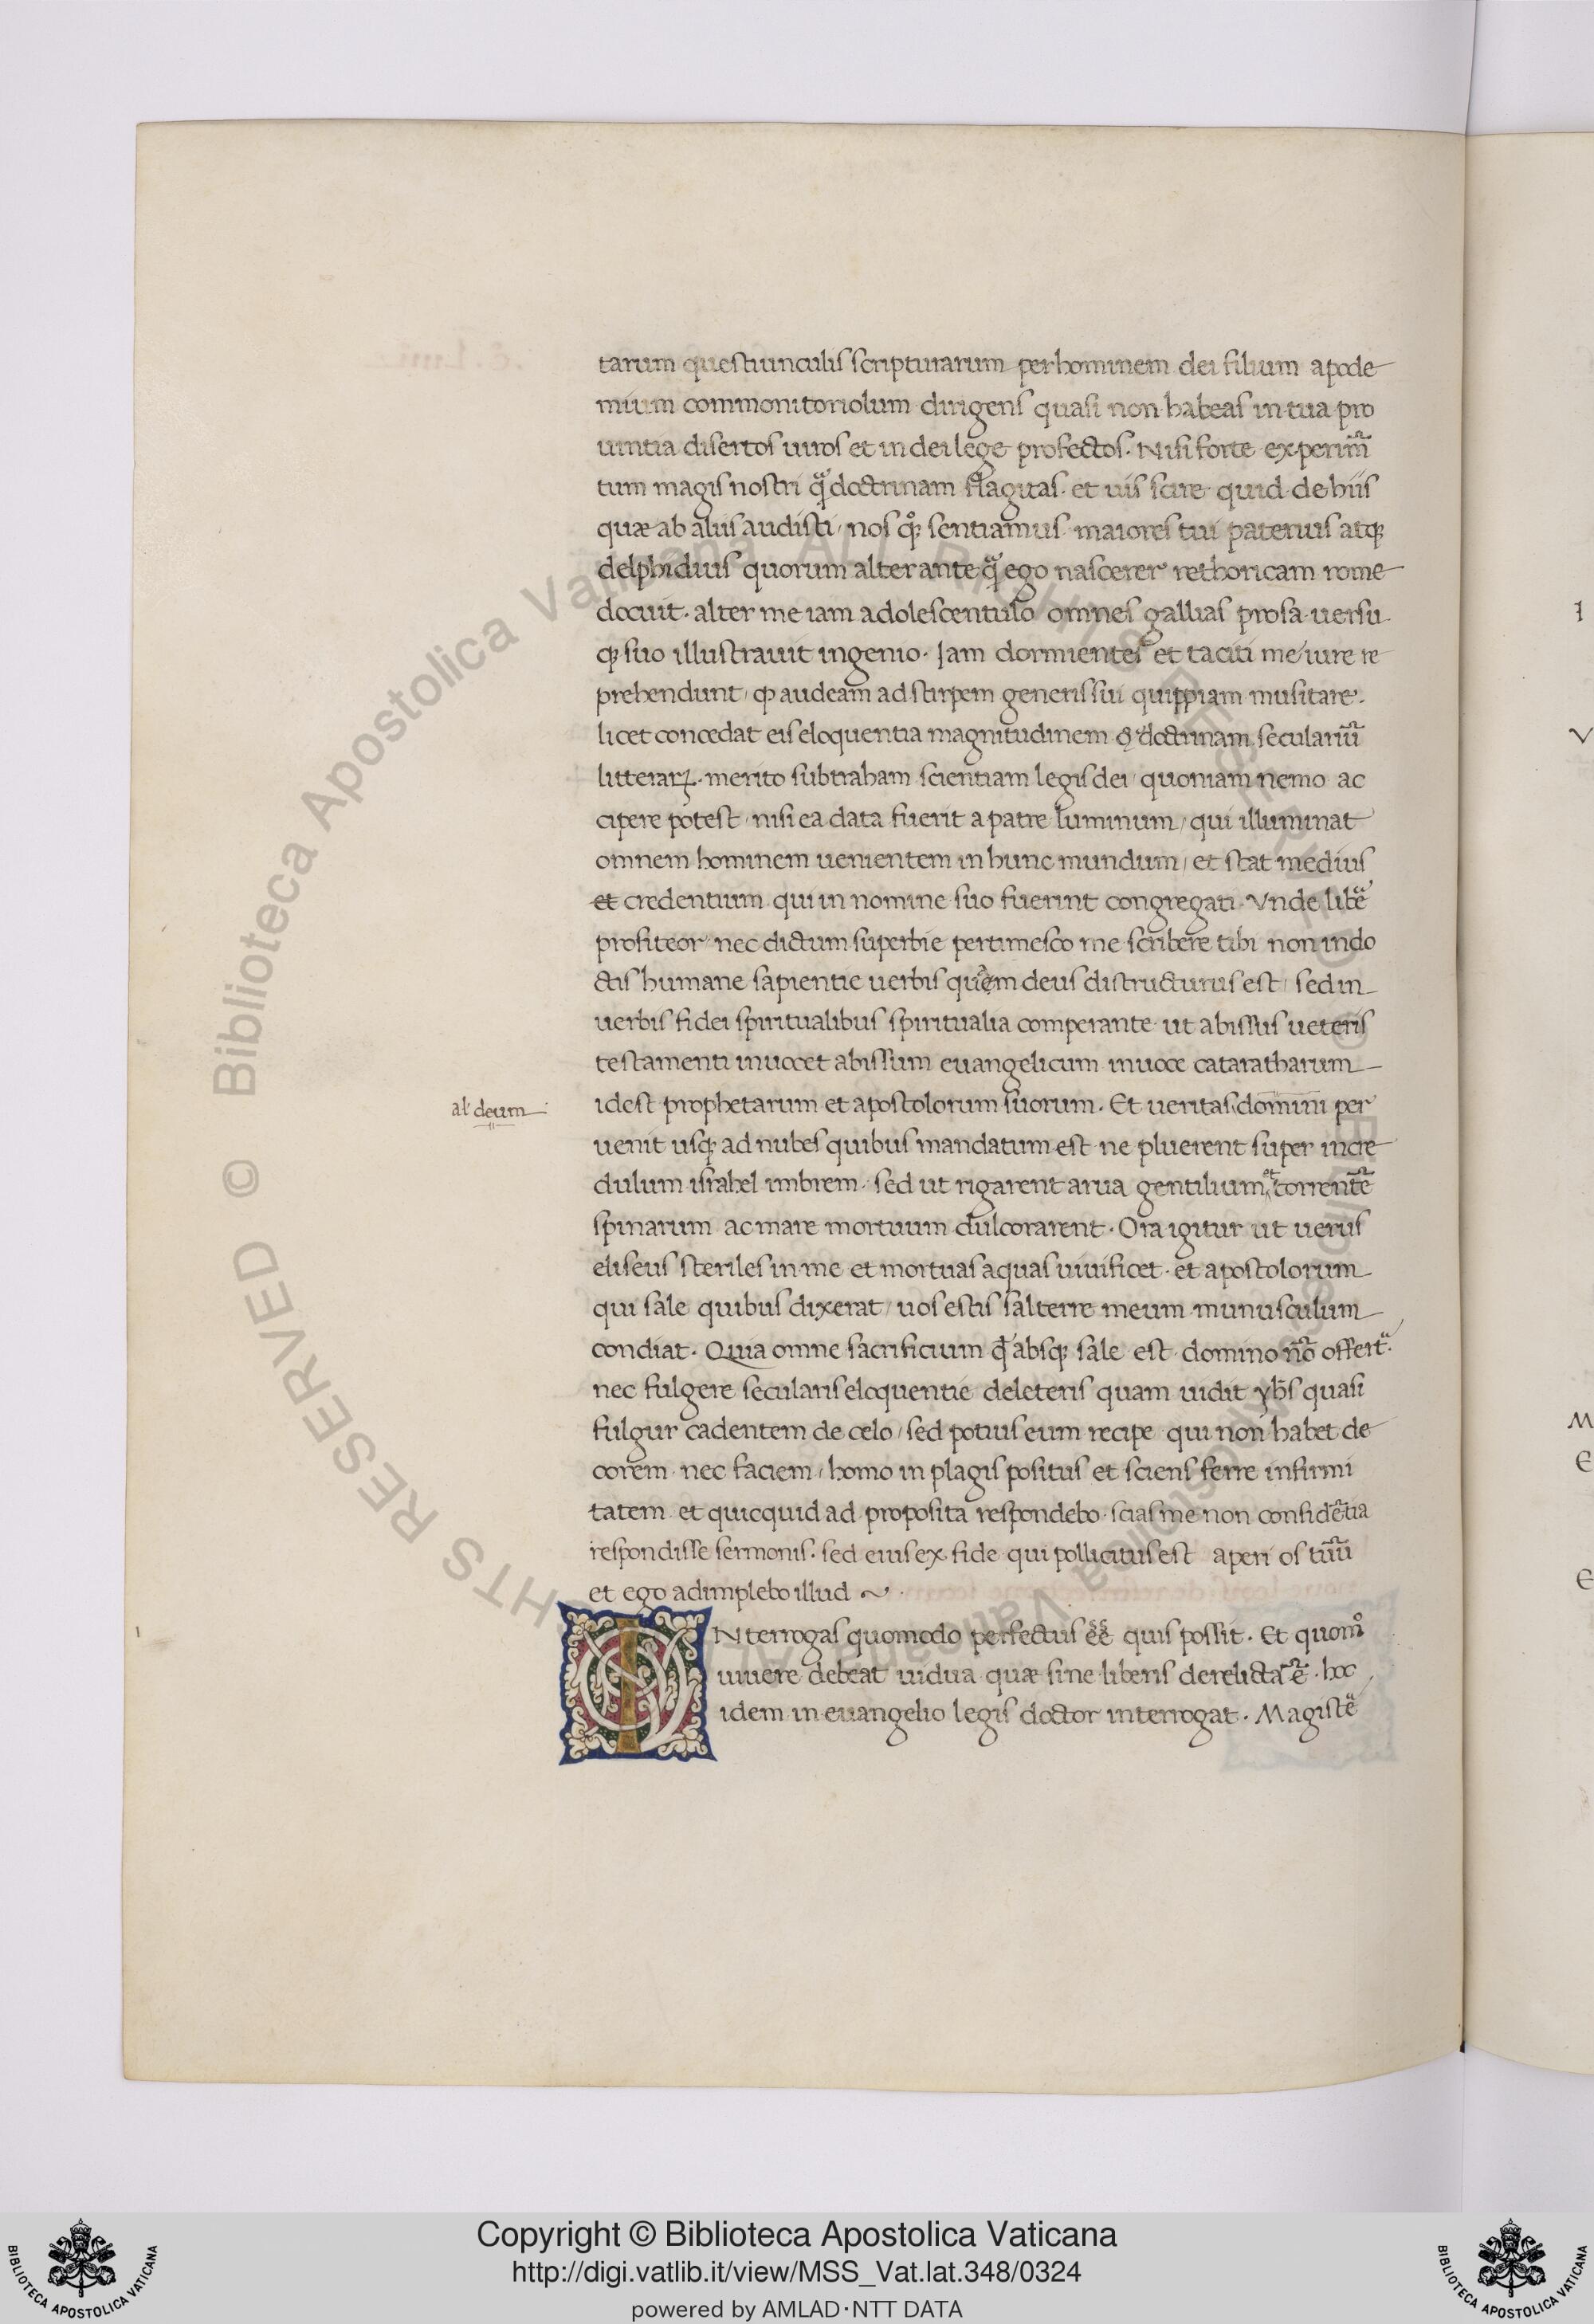 tarum questiunculis scripturarum per hominem dei filium apode
mium commonitoriolum dirigens quasi non habeas in tua pro
uintia disertos uiros et in dei lege profectos. Nisi forte experim̃
tum magis nostri q̃ doctrinam flagitas. et uis scire quid de hiis
quæ ab aliis audisti, nos qͦꝫ sentiamus. maiores tui pateruis atqꝫ
delphidius quorum alter ante q̃ ego nascerer rethoricam rome
docuit. alter me iam adolescentulo omnes gallias prosa uersu
qꝫ suo illustrauit ingenio. Iam dormientes et taciti me iure re
prehendunt, ꝙ audeam ad stirpem generis sui quippiam musitare.
licet concedat eis eloquentia magnitudinem & doctrinam seculariũ
litteraꝝ. merito subtraham scientiam legis dei, quoniam nemo ac
cipere potest, nisi ea data fuerit a patre luminum, qui illuminat
omnem hominem uenientem in hunc mundum, et stat medius
et credentium qui in nomine suo fuerint congregati. Vnde libẽ
profiteor nec dictum superbie pertimesco me scribere tibi non indo
ctis humane sapientie uerbis quẽm deus distructurus est, sed in
uerbis fidei spiritualibus spiritualia comperante ut abissus ueteris
testamenti inuocet abissum euangelicum inuoce cataratharum
al' deum
idest prophetarum et apostolorum suorum. Et ueritas domini per
uenit usqꝫ ad nubes quibus mandatum est ne pluerent super incre
dulum israhel imbrem. sed ut rigarent arua gentilium et torrentẽ
spinarum ac mare mortuum dulcorarent. Ora igitur ut uerus
eliseus steriles in me et mortuas aquas uiuificet. et apostolorum
qui sale quibus dixerat, uos estis sal terre meum munusculum
condiat. Quia omne sacrificium qd̃ absqꝫ sale est domino nõ offert̃.
nec fulgere secularis eloquentie deleteris quam uidit yhs̃ quasi
fulgur cadentem de celo, sed potius eum recipe qui non habet de
corem nec faciem, homo in plagis positus et sciens ferre infirmi
tatem et quicquid ad proposita respondebo scias me non confidẽtia
respondisse sermonis. sed eius ex fide qui pollicitus est aperi os tuũ
et ego adimplebo illud ~ .
INterrogas quomodo perfectus eẽ quis possit. Et quomͦ
uiuere debeat uidua quæ sine liberis derelicta ẽ. hoc
idem in euangelio legis doctor interrogat. Magistẽ
Copyright © Biblioteca Apostolica Vaticana
http://digi.vatlib.it/view/MSS_Vat.lat.348/0324
powered by AMLAD·NTT DATA